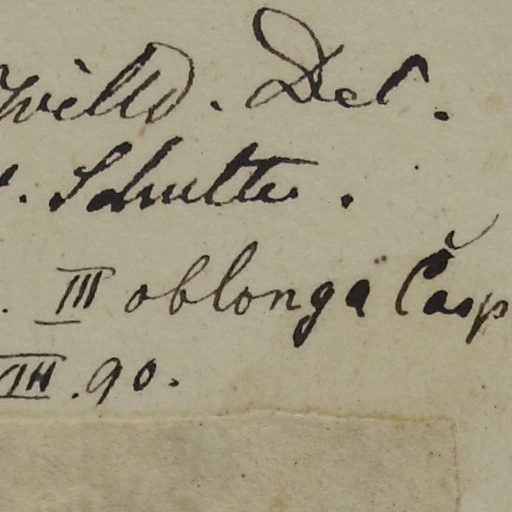 Willd. Det.
. Schultes.
. III oblonga Casp
III. 90.